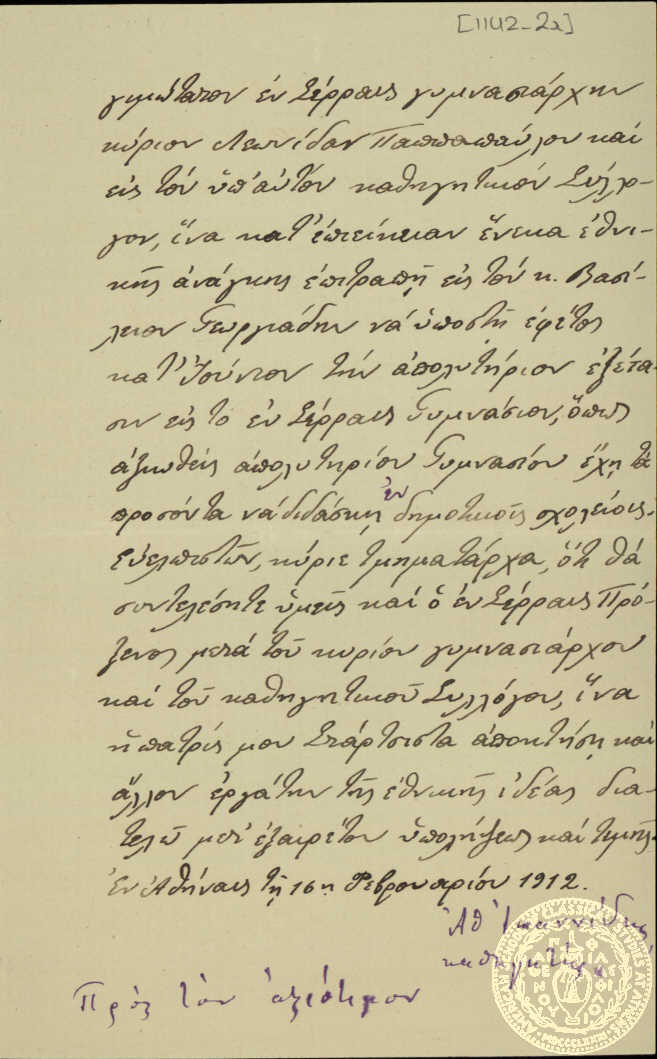 [1142-2α]
γιμώτατον ἐν Σέρραις γυμνασιάρχην
κύριον Λεωνίδαν Παππαπαύλου καὶ
εἰς τὸν ὑπ' αὐτὸν καθηγητικὸν Σύλλο-
γον, ἵνα κατ' ἐπιείκειαν ἕνεκα ἐθνι-
κῆς ἀνάγκης ἐπιτραπῇ εἰς τὸν κ. Βασί-
λειον Γεωργιάδην νὰ ὑποστῇ ἐφέτος
κατ' Ἰούνιον τὴν ἀπολυτήριον ἐξέτα-
σιν εἰς τὸ ἐν Σέρραις Γυμνάσιον, ὅπως
ἀξιωθεὶς ἀπολυτηρίου Γυμνασίου ἔχῃ τὰ
προσόντα νὰ διδάσκῃ ἐν δημοτικοῖς σχολείοις.
Εὐελπιστῶν, κύριε τμηματάρχα, ὅτι θὰ
συντελέσητε ὑμεῖς καὶ ὁ ἐν Σέρραις Πρό-
ξενος μετὰ τοῦ κυρίου γυμνασιάρχου
καὶ τοῦ καθηγητικοῦ Συλλόγου, ἵνα
ἡ πατρίς μου Στάρτσιστα ἀποκτήσῃ καὶ
ἄλλον ἐργάτην τῆς ἐθνικῆς ἰδέας δια-
τελῶ μετ' ἐξαιρέτου ὑπολήψεως καὶ τιμῆς.
Ἐν Ἀθήναις τῇ 16ῃ Φεβρουαρίου 1912.
Ἀθ Ἰωαννίδης
καθηγητὴς
Πρὸς τὸν ἀξιότιμον
AMERICAN SCHOOL OF CLASSICAL STUDIES AT ATHENS
MDCCCLXXXI